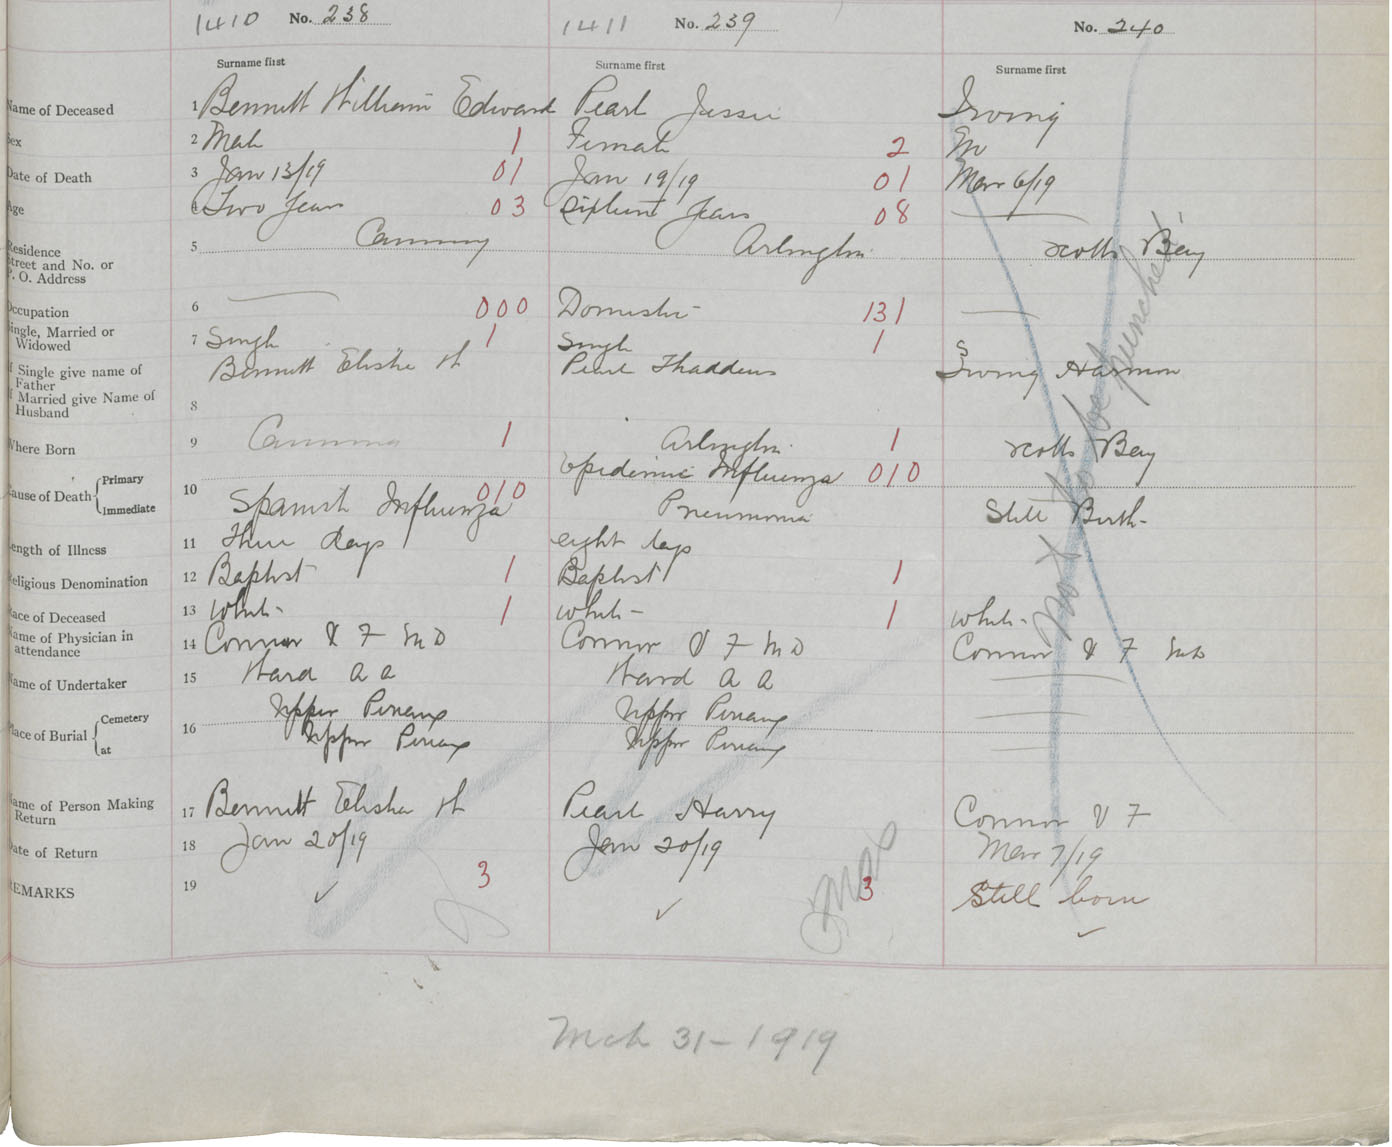 1410 No. 238 1411 No. 239 No. 240
Surname first Surname first Surname first
Name of Deceased 1 Bennett William Edward Pearl Jessie Irving
Sex 2 Male 1 Female 2 M
Date of Death 3 Jan 13/19 01 Jan 19/19 01 Mar 6/19
Age 4 Two Years 03 Sixteen Years 08
Residence Street and No. or P. O. Address 5 Canning Arlington Scotts Bay
Occupation 6 000 Domestic 131
Single, Married or Widowed 7 Single 1 Single 1 S
If Single give name of Father Bennett Elisha H Pearl Thaddeus Irving Harmon
If Married give Name of Husband 8
Where Born 9 Canning 1 Arlington 1 Scotts Bay
Cause of Death Primary Epidemic Influenza 010
Immediate 10 Spanish Influenza 010 Pneumonia Still Birth-
Length of Illness 11 Three days eight days
Religious Denomination 12 Baptist 1 Baptist 1
Race of Deceased 13 White- 1 White- 1 White-
Name of Physician in attendance 14 Connor V F M D Connor V F M D Connor V F MD
Name of Undertaker 15 Ward A A Ward A A
Place of Burial Cemetery Upper Pereaux Upper Pereaux
at 16 Upper Pereaux Upper Pereaux
Name of Person Making Return 17 Bennett Elisha H Pearl Harry Connor V F
Date of Return 18 Jan 20/19 Jan 20/19 Mar 7/19
REMARKS 19 3 3 Still born
✓ ✓ ✓
Not to be punched!
Mch 31-1919